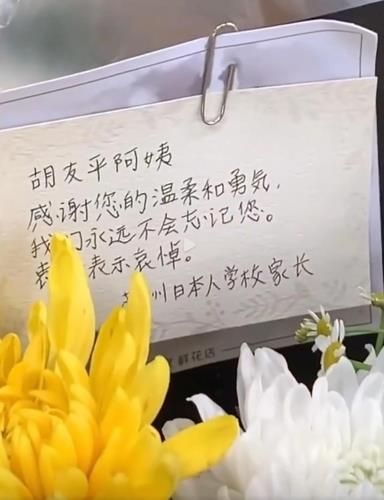 胡友平阿姨
感谢您的温柔和勇气,
我们永远不会忘记您。
表示哀悼。
州日本人学校家长
鲜花店